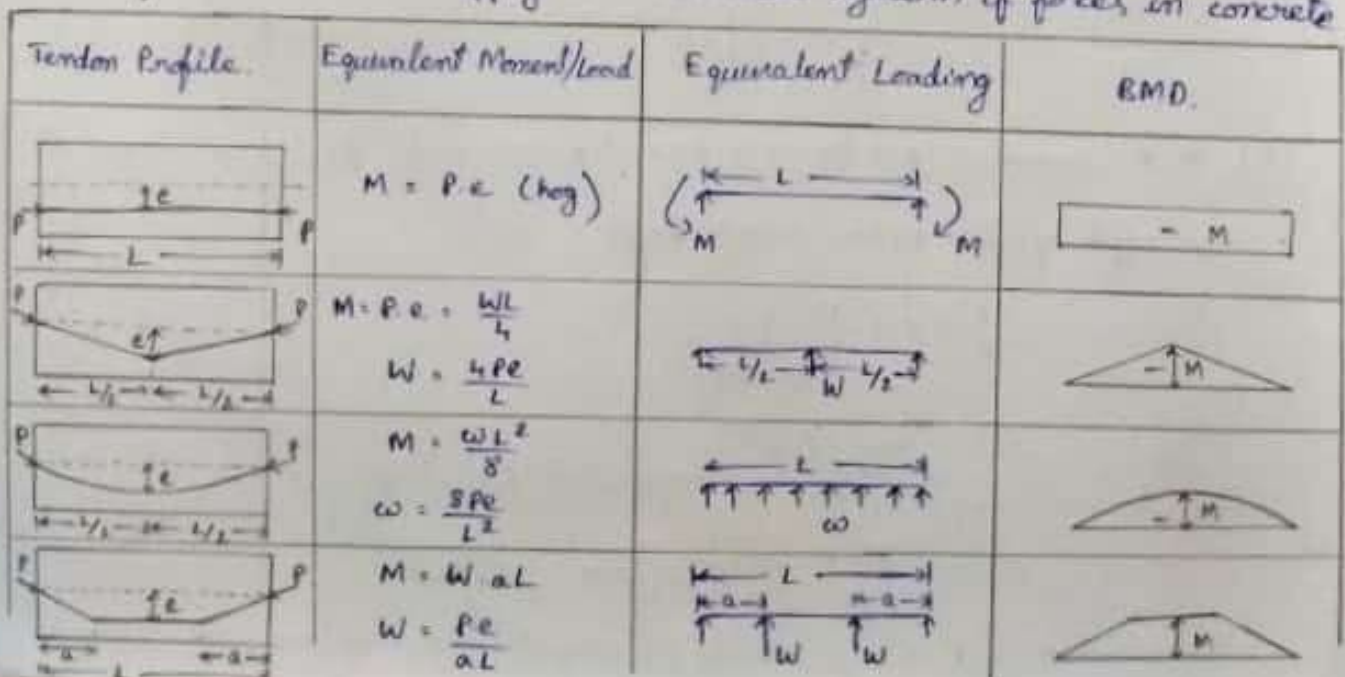 of forces in concrete
Tendon Profile. Equivalent Moment/Load Equivalent Loading BMD.
e
P P
L
M = P.e (hog)
L
M M
- M
P P
e
L/2 L/2
M = P.e. = WL/4
W = 4Pe/L
L/2 W L/2
- M
P P
e
L/2 L/2
M = ωL²/8
ω = 8Pe/L²
L
ω
- M
P P
e
a a
L
M = W.aL
W = Pe/aL
L
a a
W W
M